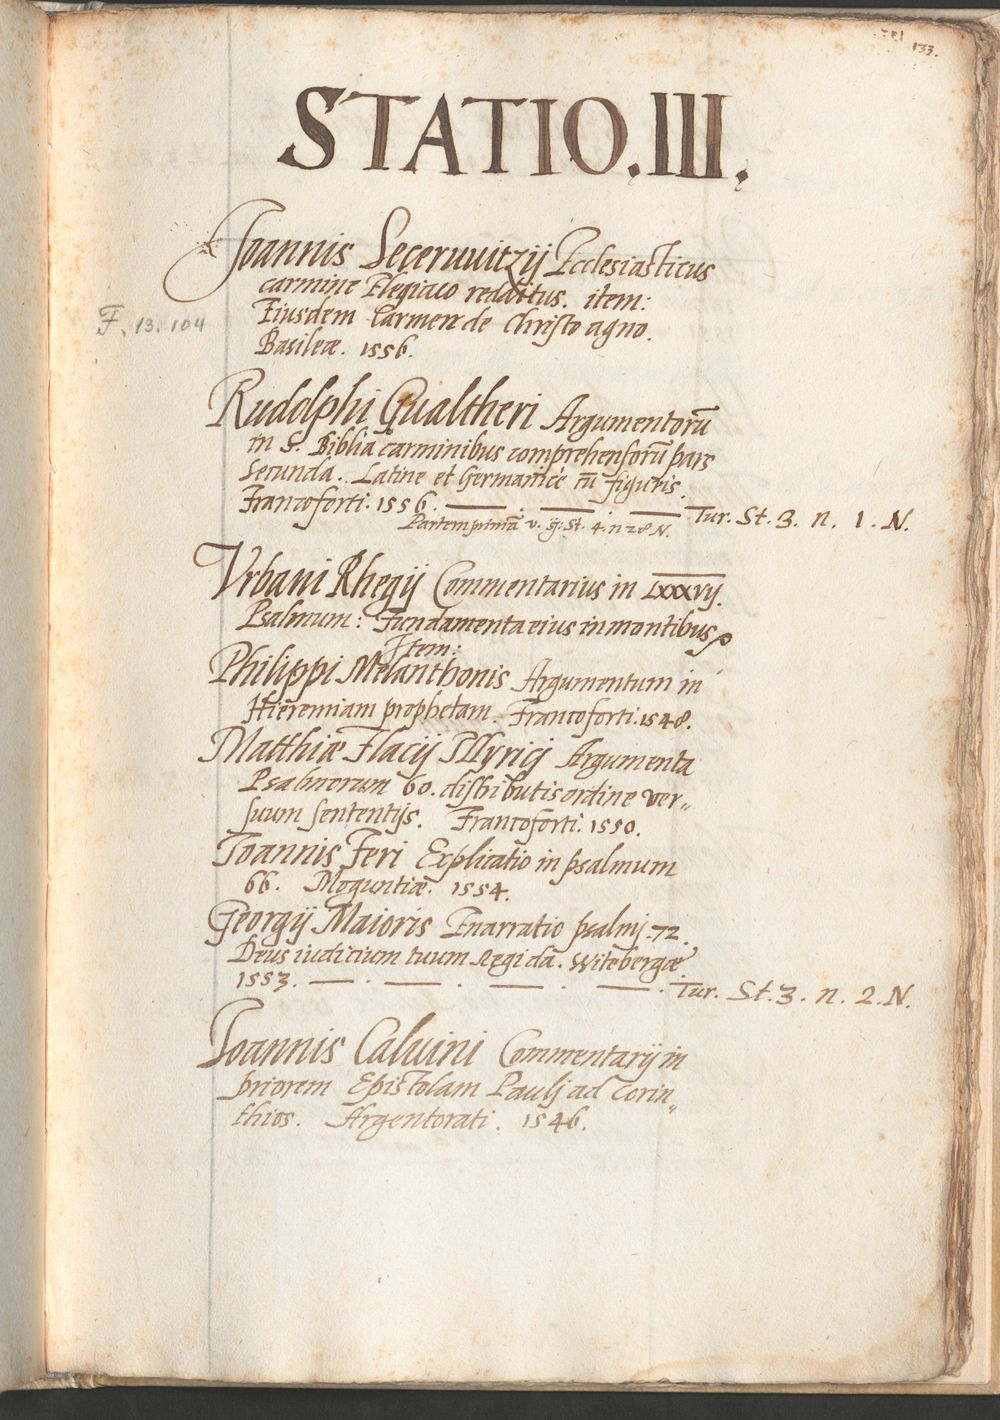 133.
STATIO. III.
Joannis Seceruuitzij Ecclesiasticus
carmine Elegiaco redditus. item:
Eiusdem Carmen de Christo agno.
F. 13. 104
Basileæ. 1556.
Rudolphi Gualtheri Argumentorũ
in S. Biblia carminibus comprehensorũ pars
secunda. Latine et Germanicè cũ figuris.
Francoforti. 1556. Tur. St. 3. n. 1. N.
Partem primã v. St. 4. n 28 N.
Vrbani Rhegij Commentarius in LXXXVIJ.
Psalmum: Fundamenta eius in montibus
Item:
Philippi Melanthonis Argumentum in
Hieremiam prophetam. Francoforti. 1548.
Matthiæ Flacij Illyricj Argumenta
Psalmorum 60. distributis ordine ver„
suum sententijs. Francoforti. 1550.
Joannis Feri Explicatio in psalmum
66. Moguntiæ. 1554.
Georgij Maioris Enarratio psalmj 72.
Deus iudicium tuum Regi da. Witebergæ
1553. Tur. St. 3. n. 2. N.
Joannis Caluini Commentarij in
priorem Epistolam Paulj ad Corin„
thios. Argentorati. 1546.